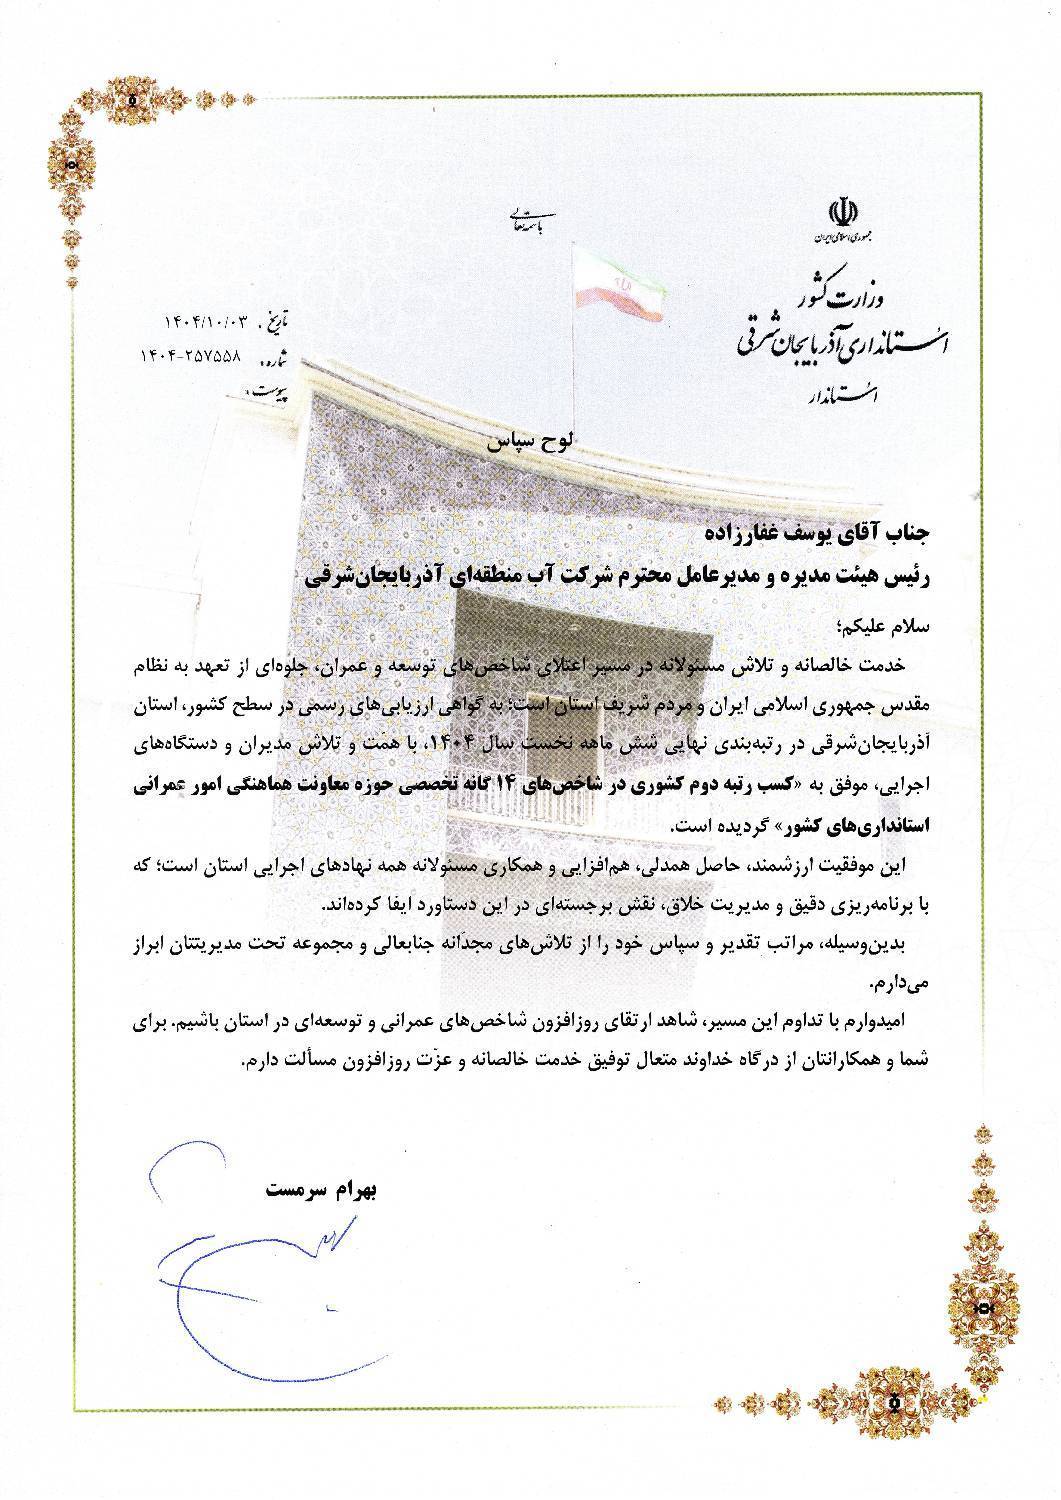 باسمه تعالی
جمهوری اسلامی ایران
وزارت کشور
استانداری آذربایجان شرقی
استاندار
تاریخ : ۱۴۰۴/۱۰/۰۳
شماره: ۱۴۰۴-۲۵۷۵۵۸
پیوست:
لوح سپاس
جناب آقای یوسف غفارزاده
رئیس هیئت مدیره و مدیرعامل محترم شرکت آب منطقه‌ای آذربایجان‌شرقی
سلام علیکم؛
خدمت خالصانه و تلاش مسئولانه در مسیر اعتلای شاخص‌های توسعه و عمران، جلوه‌ای از تعهد به نظام
مقدس جمهوری اسلامی ایران و مردم شریف استان است؛ به گواهی ارزیابی‌های رسمی در سطح کشور، استان
آذربایجان‌شرقی در رتبه‌بندی نهایی شش ماهه نخست سال ۱۴۰۴، با همّت و تلاش مدیران و دستگاه‌های
اجرایی، موفق به «کسب رتبه دوم کشوری در شاخص‌های ۱۴ گانه تخصصی حوزه معاونت هماهنگی امور عمرانی
استانداری‌های کشور» گردیده است.
این موفقیت ارزشمند، حاصل همدلی، هم‌افزایی و همکاری مسئولانه همه نهادهای اجرایی استان است؛ که
با برنامه‌ریزی دقیق و مدیریت خلاق، نقش برجسته‌ای در این دستاورد ایفا کرده‌اند.
بدین‌وسیله، مراتب تقدیر و سپاس خود را از تلاش‌های مجدّانه جنابعالی و مجموعه تحت مدیریتتان ابراز
می‌دارم.
امیدوارم با تداوم این مسیر، شاهد ارتقای روزافزون شاخص‌های عمرانی و توسعه‌ای در استان باشیم. برای
شما و همکارانتان از درگاه خداوند متعال توفیق خدمت خالصانه و عزّت روزافزون مسألت دارم.
بهرام سرمست